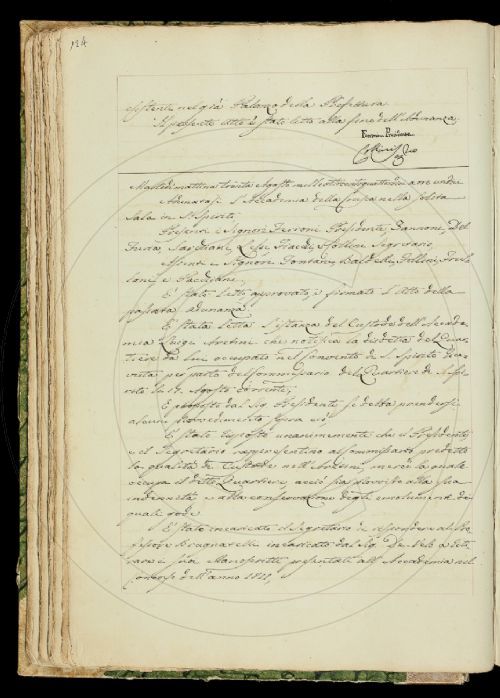 124
esistente nel già Palazzo della Prefettura
Il presente atto è stato letto alla fine dell'Adunanza
Ferroni Presidente
Martedì mattina trenta Agosto milleottocentoquattordici a ore undici
Adunatasi l'Accademia della Crusca nella solita
Sala in S. Spirito
Presenti i Signori Ferroni Presidente, Zannoni, Del
Furia, Sarchiani, Lessi, Fiacchi, e Collini Segretario
Assenti i Signori Fontani, Baldelli,
e
E' stato letto approvato, e firmato l'Atto della
passata adunanza.
E' stata letta l'istanza del Custode dell'Accade-
mia Luigi che notifica la disdetta del Quar-
tiere da lui occupato nel Convento di S. Spirito
per parte del Commissario del Quartiere di S. Spi-
rito li Agosto corrente;
E proposto dal Sig. Presidente se debba prendersi
alcun provvedimento sopra ciò
E' stato risposto unanimemente che il Presidente
e il Segretario rappresentino al Commissario predetto
la qualità di Custode nell' mercè la quale
occupa il detto Quartiere, acciò sia provvisto alla sua
indennità e alla conservazione degli emolumenti di
quali gode
E' stato incaricato il Segretario di rispondere al Pro-
fessore Brugnatelli incaricato dal Sig. De Velo a riti-
rare i suoi Manoscritti presentati all'Accademia nel
Concorso dell'anno